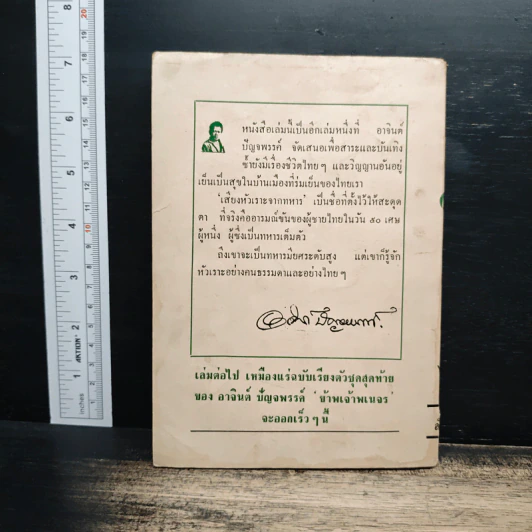 หนังสือเล่มนี้เป็นอีกเล่มหนึ่งที่ อาจินต์
ปัญจพรรค์ จัดเสนอเพื่อสาระและบันเทิง
ซ้ำยังมีเรื่องชีวิตไทย ๆ และวิญญานอันอยู่
เย็นเป็นสุขในบ้านเมืองที่ร่มเย็นของไทยเรา
'เสียงหัวเราะจากทหาร' เป็นชื่อที่ตั้งไว้ให้สะดุด
ตา ที่จริงคืออารมณ์ขันของผู้ชายไทยในวัน ๕๐ เศษ
ผู้หนึ่ง ผู้ซึ่งเป็นทหารเต็มตัว
ถึงเขาจะเป็นทหารมียศระดับสูง แต่เขาก็รู้จัก
หัวเราะอย่างคนธรรมดาและอย่างไทย ๆ
เล่มต่อไป เหมืองแร่ฉบับเรียงตัวชุดสุดท้าย
ของ อาจินต์ ปัญจพรรค์ 'ข้าพเจ้าพเนจร'
จะออกเร็ว ๆ นี้